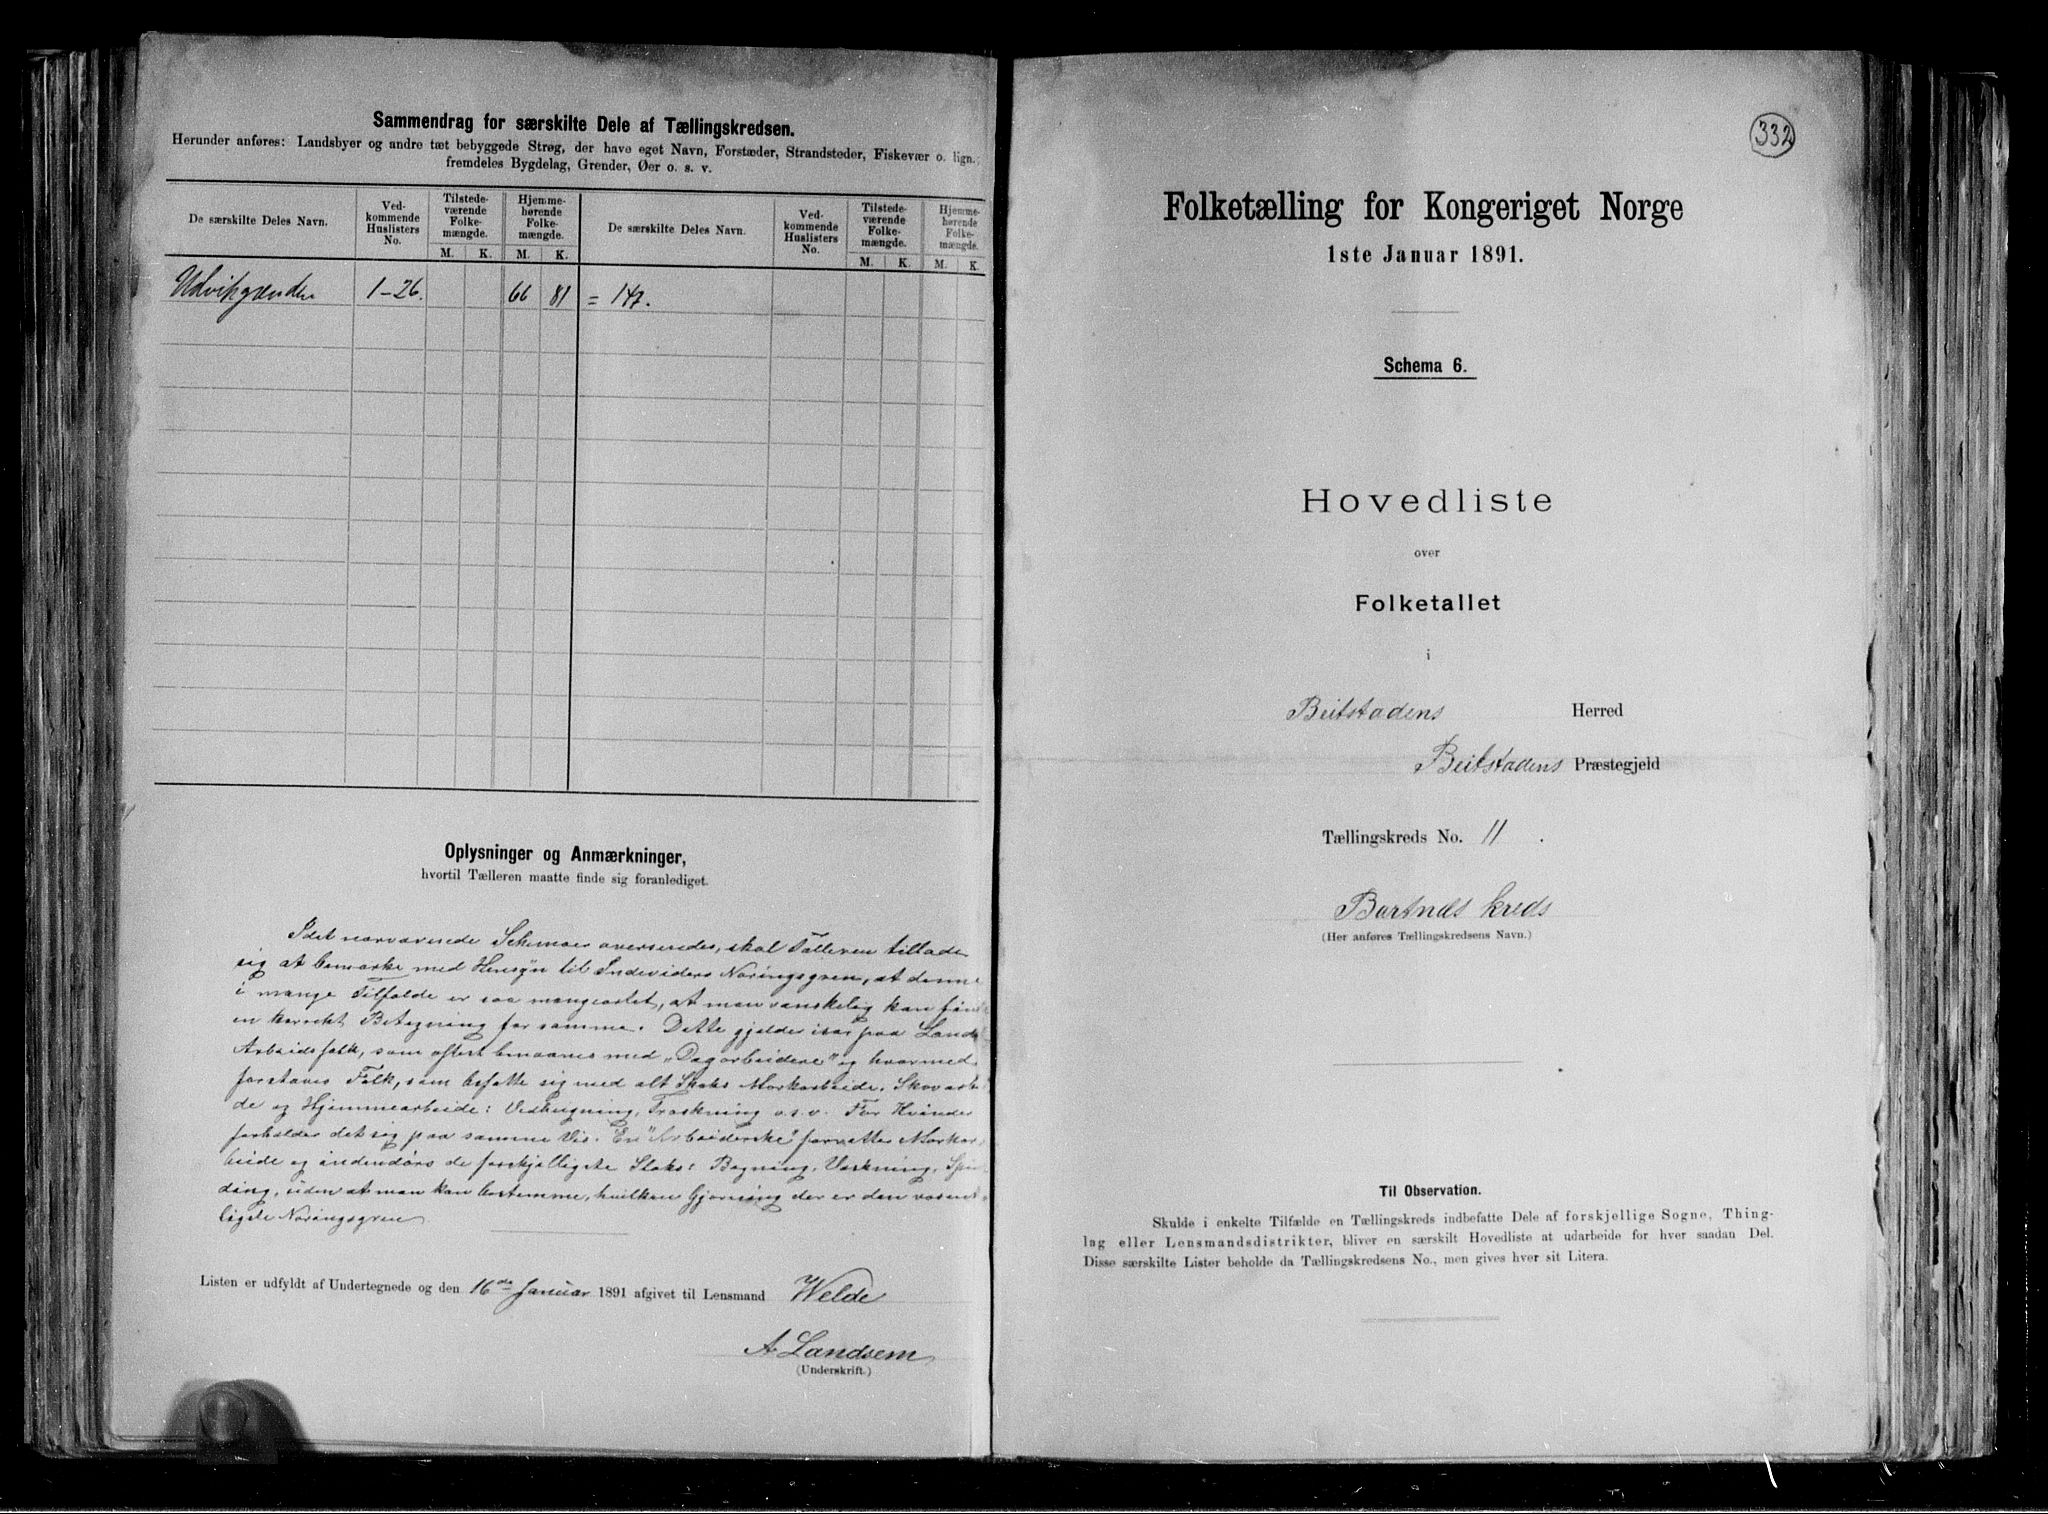 Sammendrag for særskilte Dele af Tællingskredsen.
Herunder anføres: Landsbyer og andre tæt bebyggede Strøg, der have eget Navn, Forstæder, Strandsteder, Fiskevær o. lign.;
fremdeles Bygdelag, Grender, Øer o. s. v.
De særskilte Deles Navn. Ved-kommende Huslisters No. Tilstede-værende Folke-mængde. M. K. Hjemme-hørende Folke-mængde. M. K. De særskilte Deles Navn. Ved-kommende Huslisters No. Tilstede-værende Folke-mængde. M. K. Hjemme-hørende Folke-mængde. M. K.
Udvikgrenden 1-26. 66 81 = 147.
Oplysninger og Anmærkninger,
hvortil Tælleren maatte finde sig foranlediget.
Idet nærværende Schemaer oversendes, skal Tælleren tillade
sig at bemærke med Hensyn til Individers Næringsgren, at denne
i mange Tilfælde er saa mangeartet, at man vanskelig kan finde
en korrekt Betegning for samme. Dette gjelder især paa Lands
Arbeidsfolk, som oftest benævnes med „Dagarbeidere" og hvormed
forstaaes Folk, som befatte sig med alt Slags Markarbeide, Skovarbei
de og Hjemmearbeide: Vedhugning, Træskning o.s.v. For Kvinder
forholder det sig paa samme Vis. En "Arbeiderske" forretter Markar
beide og indendørs de forskjelligste Slags: Bagning, Vaskning, Spin
ding, uden at man kan bestemme, hvilken Gjerning der er den væsent-
ligste Næringsgren.
Listen er udfyldt af Undertegnede og den 16de Januar 1891 afgivet til Lensmand Welde
A Landsem
(Underskrift.)
332
Folketælling for Kongeriget Norge
1ste Januar 1891.
Schema 6.
Hovedliste
over
Folketallet
i
Beitstadens Herred
Beitstadens Præstegjeld
Tællingskreds No. 11.
Bartnæs kreds
(Her anføres Tællingskredsens Navn.)
Til Observation.
Skulde i enkelte Tilfælde en Tællingskreds indbefatte Dele af forskjellige Sogne, Thing-
lag eller Lensmandsdistrikter, bliver en særskilt Hovedliste at udarbeide for hver saadan Del.
Disse særskilte Lister beholde da Tællingskredsens No., men gives hver sit Litera.